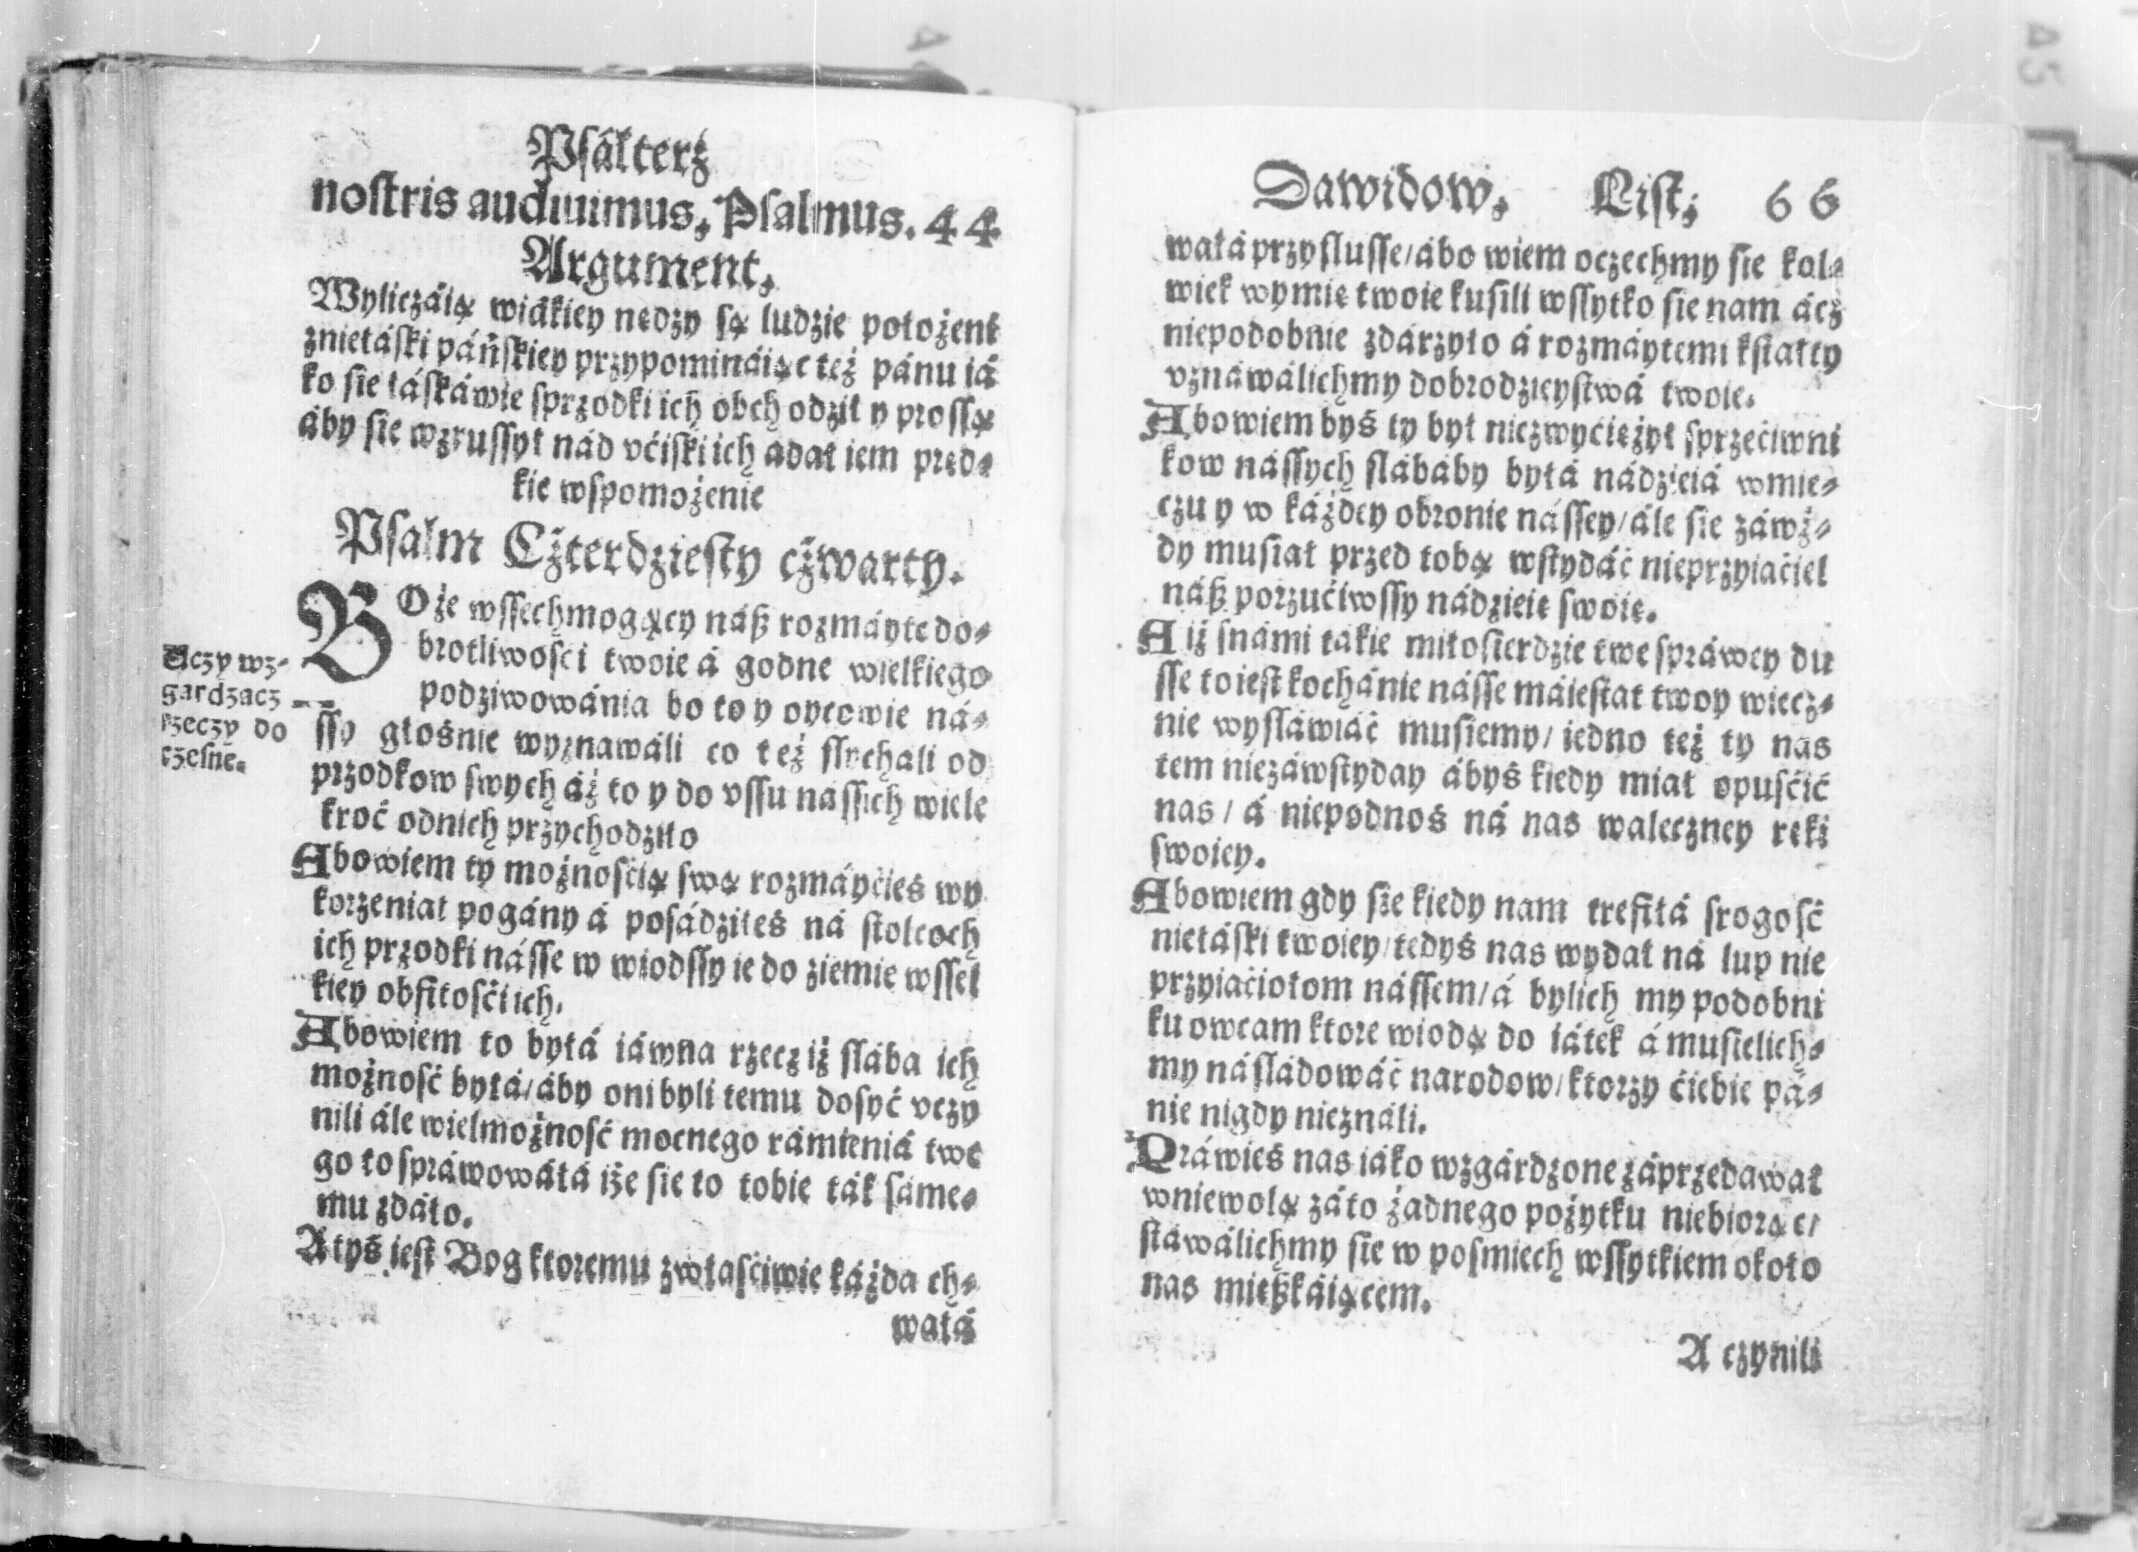 Psałterz
nostris audiuimus, Psalmus. 44
Argument,
Wyliczáią wiákiey nędzy są ludzie położeni
zniełáski páńskiey przypomináiąc też pánu iá
ko sie łáskáwie sprzodki ich obchodził y prossą
áby sie wzrussył nád vćiski ich adał iem pręd⸗
kie wspomożenie
Psalm Cżterdziesty cżwarty.
BOże wssechmogący náß rozmáyte do⸗
brotliwosci twoie á godne wielkiego
podziwowánia bo to y oycowie ná⸗
ssy głośnie wyznawáli co też slychali od
przodkow swych áż to y do vssu nássich wiele
kroć odnich przychodziło
Abowiem ty możnosćią swą rozmáyćieś wy
korzeniał pogány á posádziłeś ná stolcoch
ich przodki násse w wiodssy ie do ziemie wssel
kiey obfitosći ich.
Abowiem to byłá iáwna rzecz iż słába ich
możnosć byłá/áby oni byli temu dosyć vczy
nili ále wielmożnosć mocnego rámieniá twe
go to spráwowáłá iże sie to tobie ták same⸗
mu zdáło.
A tyś iest Bog ktoremu zwłasćiwie káżda ch⸗
wałá
Rczy wz⸗
gardzacz
rzeczy do
czesne.
Dawidow. List. 66
wałá przyslusse/ábo wiem oczechmy sie kol⸗
wiek wymię twoie kusili wssytko sie nam ácz
niepodobnie zdárzyło á rozmáytemi kstałty
vznáwálichmy dobrodzieystwá twoie.
Abowiem byś ty był niezwyćiężył sprzećiwni
kow nássych słábáby byłá nádzieiá wmie⸗
czu y w káżdey obronie nássey/ále sie záwż⸗
dy musiał przed tobą wstydáć nieprzyiaćiel
náß porzućiwssy nádzieię swoię.
A iż snámi takie miłosierdzie twe spráwey du
sse toiest kochánie násse máiestat twoy wiecz⸗
nie wysláwiáć musiemy/ iedno też ty nas
tem niezáwstyday ábyś kiedy miał opusćić
nas / á niepodnoś ná nas waleczney ręki
swoiey.
Abowiem gdy sże kiedy nam trefiłá srogosć
niełáski twoiey/tedyś nas wydał ná lup nie
przyiaćiołom nássem/á bylich my podobni
ku owcam ktore wiodą do iátek á musielich⸗
my násládowáć narodow/ktorzy ćiebie pá⸗
nie nigdy nieználi.
Práwieś nas iáko wzgárdzone záprzedawał
wniewolą záto żadnego pożytku niebiorąc/
stáwálichmy sie w posmiech wssytkiem około
nas mießkáiącem.
A czynili